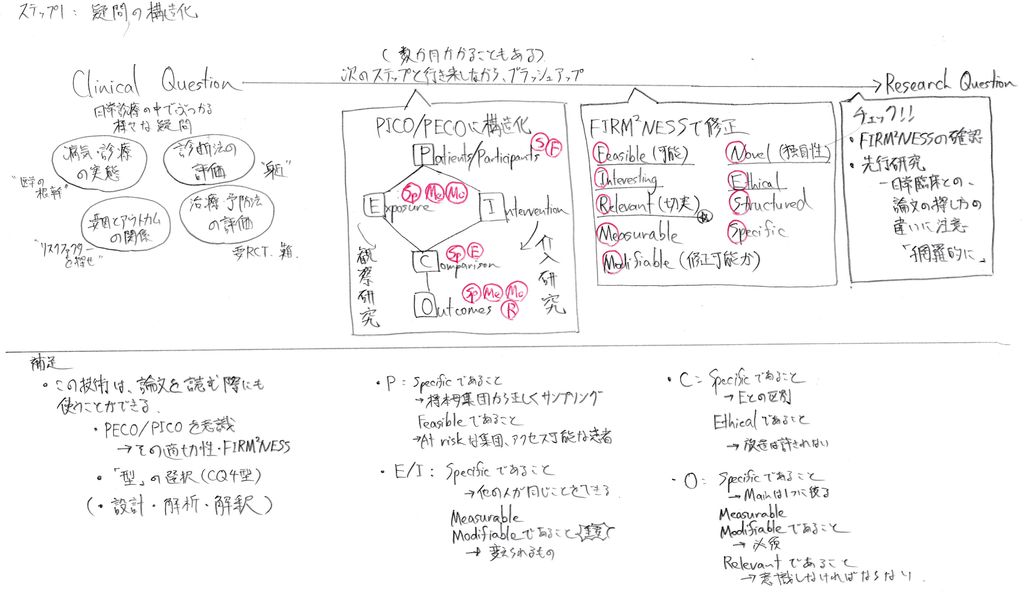 ステップ1: 疑問の構造化
(数か月かかることもある)
次のステップと行き来しながら、ブラッシュアップ
Clinical Question
Research Question
日常診療の中でぶつかる
様々な疑問
病気・診療
の実態
診断法の
評価
"身近"
要因とアウトカム
の関係
治療・予防法
の評価
"リスクファクター
要RCT.難.
PICO/PECOに構造化
Patients/Participants S F
Exposure Sp Me Mo
Intervention
Comparison Sp E
Outcomes Sp Me Mo
R
観察研究
介入研究
FIRM²NESSで修正
Feasible (可能)
Interesting
Relevant (切実)
Measurable
Modifiable (修正可能か)
Novel (独自性)
Ethical
Structured
Specific
チェック!!
・FIRM²NESSの確認
・先行研究
ー日常臨床との、
論文の探し方の
違いに注意
「網羅的に」
補足
・この技術は、論文を読む際にも
使うことができる.
・PECO/PICOを意識
→その適切性・FIRM²NESS
・「型」の選択 (CQ4型)
(・設計・解析・解釈)
・P: Specificであること
→標本母集団から正しくサンプリング
Feasibleであること
→At riskな集団、アクセス可能な患者
・E/I: Specificであること
→他の人が同じことをできる.
Measurable
Modifiableであること 重要
→変えられるもの
・C: Specificであること
→Eとの区別
Ethicalであること
→放置は許されない
・O: Specificであること
→Mainは1つに絞る
Measurable
Modifiableであること
→必須
Relevantであること
→意識しなければならない.